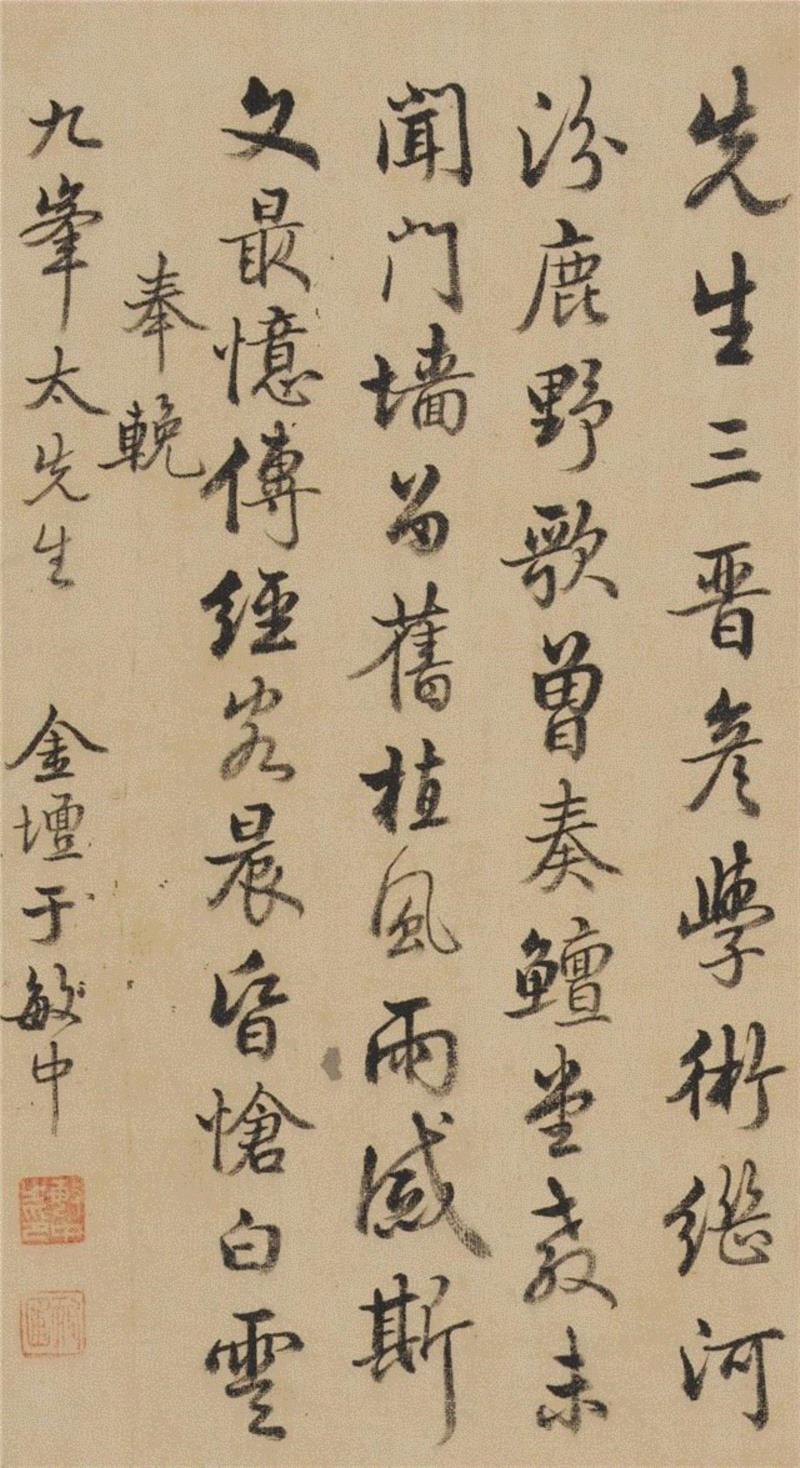 先生三晋彥學術繼河
汾鹿野歌曾奏鱣堂教未
聞門墻留舊植風雨感斯
文最憶傳經客晨昏愴白雲
奉輓
九峯太先生 金壇于敏中